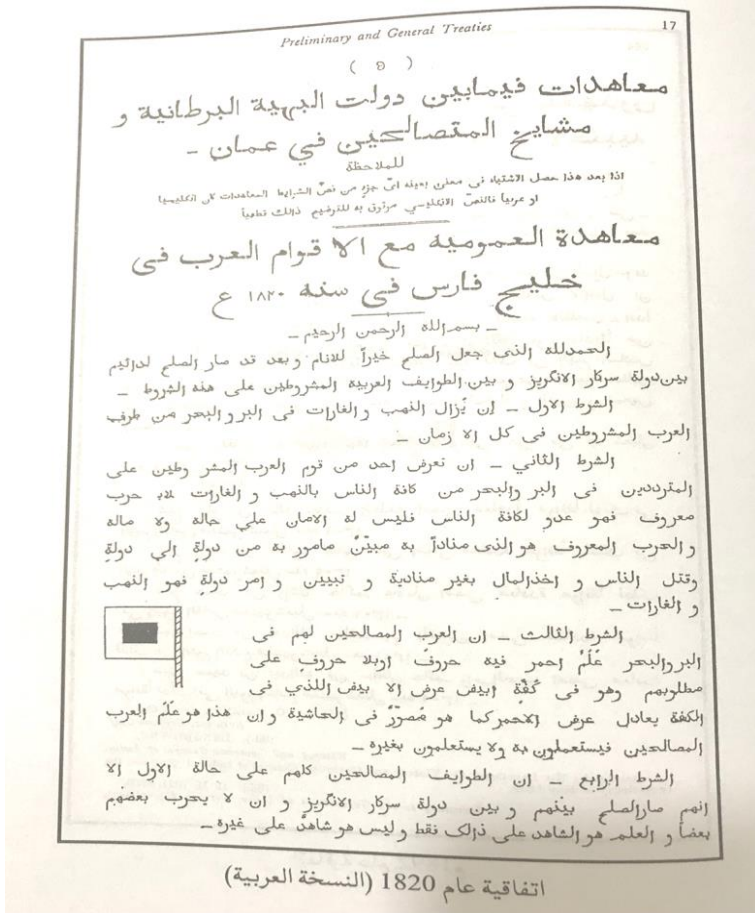 Preliminary and General Treaties 17
( ๑ )
معاهدات فيمابين دولت البهية البرطانية و
مشايخ المتصالحين في عمان –
للملاحظة
اذا بعد هذا حصل الاشتياه فى معنى بعينه اىّ جزءٍ من نصّ الشرايط المعاهدات انكليسيا
او عربياً فالنصّ الانكليسي موثوق به للتوضيح ذالك قطعياً
معاهدة العموميه مع الا قوام العرب فى
خليج فارس فى سنه ١٨٢٠ ع
– بسم الله الرحمن الرحيم –
الحمدلله الذى جعل الصلح خيراً للانام وبعد قد صار الصلح لدائيم
بين دولة سركار الانگريز و بين الطوايف العربيه المشروطين على هذه الشروط –
الشرط الاول – ان يُزال النهب والغارات فى البر والبحر من طرف
العرب المشروطين فى كل الا زمان –
الشرط الثاني – ان تعرض احد من قوم العرب المشر وطين على
المترددين فى البر والبحر من كافة الناس بالنهب و الغارات بلا حرب
معروف فهو عدو لكافة الناس فليس له الامان علي حاله ولا ماله
والحرب المعروف هو الذى مناداً به مبيّنٌ مامور به من دولةٍ الي دولةٍ
وقتل الناس و اخذالمال بغير منادية و تبيين و امر دولةٍ فهو النهب
و الغارات –
الشرط الثالث – ان العرب المصالحين لهم فى
البر والبحر عَلَمٌ احمر فيه حروف اوبلا حروفٍ على
مطلوبهم وهو فى كَفّةٍ ابيض عرض الا بيض اللذي فى
الكفة يعادل عرض الاحمر كما هو مُصوّرٌ فى الحاشية و ان هذا هو علَم العرب
المصالحين فيستعملون به ولا يستعلمون بغيره –
الشرط الرابع – ان الطوايف المصالحين كلهم على حالة الاول الا
انهم صار الصلح بينهم و بين دولة سركار الانگريز و ان لا يحرب بعضهم
بعضاً و العلم هو الشاهد على ذالك فقط وليس هو شاهدٌ على غيره –
اتفاقية عام 1820 (النسخة العربية)